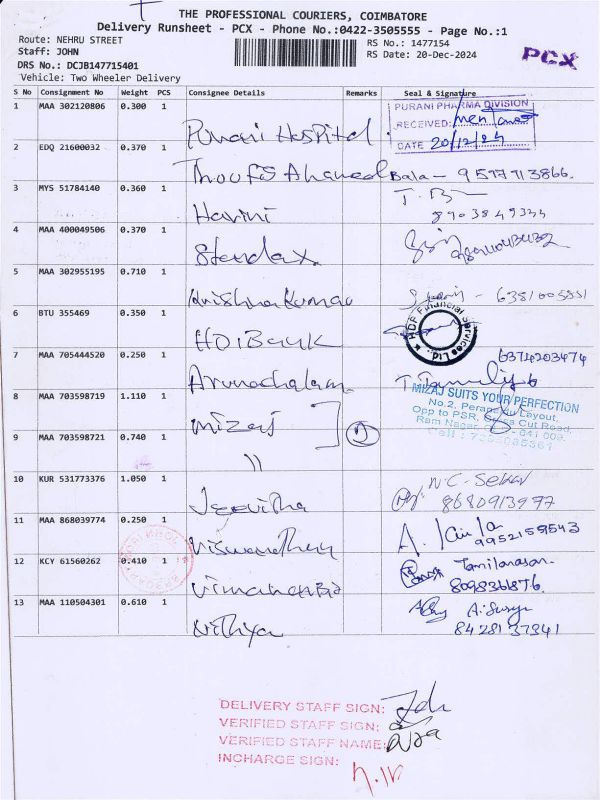 THE PROFESSIONAL COURIERS, COIMBATORE
Delivery Runsheet - PCX - Phone No.:0422-3505555 - Page No.:1
Route: NEHRU STREET
Staff: JOHN
DRS No.: DCJB147715401
Vehicle: Two Wheeler Delivery
RS No.: 1477154
RS Date: 20-Dec-2024
PCX
S No Consignment No Weight PCS Consignee Details Remarks Seal & Signature
1 MAA 302120806 0.300 1 Purani Hospital
PURANI PHARMA DIVISION
RECEIVED:
DATE 20/12/24
2 EDQ 21600032 0.370 1 Thoufs Ahamed Bala - 9597713866.
3 MYS 51784140 0.360 1 Harini
8903849344
4 MAA 400049506 0.370 1
5 MAA 302955195 0.710 1 Krishnakumar
6 BTU 355469 0.350 1 HDI Bank
HDP Financial Services Ltd.
7 MAA 705444520 0.250 1 Arunachalam
6374203474
8 MAA 703598719 1.110 1 Mizaj
MIZAJ SUITS YOUR PERFECTION
No.2, Layout,
Opp to PSR, Cut Road,
Ram Nagar, 641 009.
Cell :
9 MAA 703598721 0.740 1 "
10 KUR 531773376 1.050 1 Jeevitha N.C. Sekar
8680913977
11 MAA 868039774 0.250 1
9952159543
12 KCY 61560262 0.410 1 Tamilarasan
809836876.
13 MAA 110504301 0.610 1 Nithya A. Surya
8428137341
DELIVERY STAFF SIGN:
VERIFIED STAFF SIGN:
VERIFIED STAFF NAME:
INCHARGE SIGN: